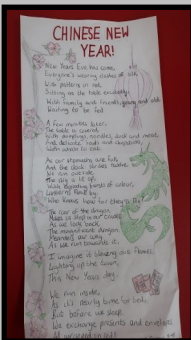 CHINESE NEW
YEAR!
New Years Eve has come,
Everyone's wearing clothes of silk
With pattern in red,
Sitting as the table excitedly
With family and friends, young and old
Waiting to be fed
A few minutes later,
The table is covered
With dumplings, noodles, duck and more
And delicate
As our stomachs are full
And the clock strikes twelve
We run outside
The sky is lit up
With exploding bursts of colour,
Lanterns float by
Who knows how far they'll fly
The roar of the dragon,
As we look back,
The magnificent dragon,
our way
As we run towards it.
I imagine it blazing out flames,
Lighting up the town,
This New Years day.
We run inside,
As it's nearly time for bed,
But before we sleep
We exchange presents and envelopes
All in red